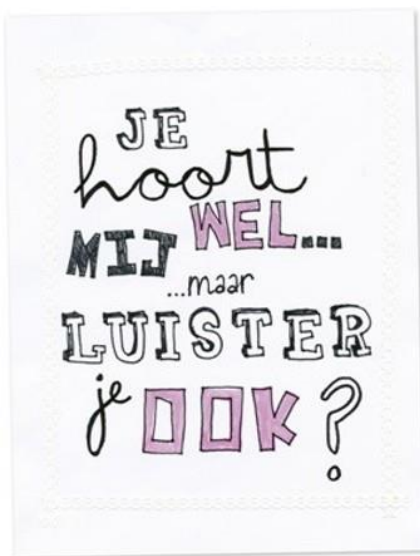 JE
hoort
MIJ WEL...
...maar
LUISTER
je OOK?